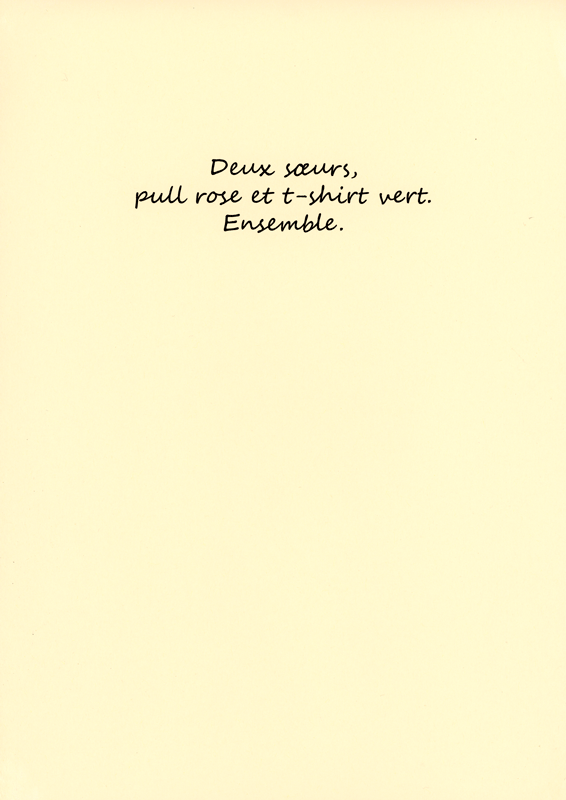 Deux sœurs,
pull rose et t-shirt vert.
Ensemble.